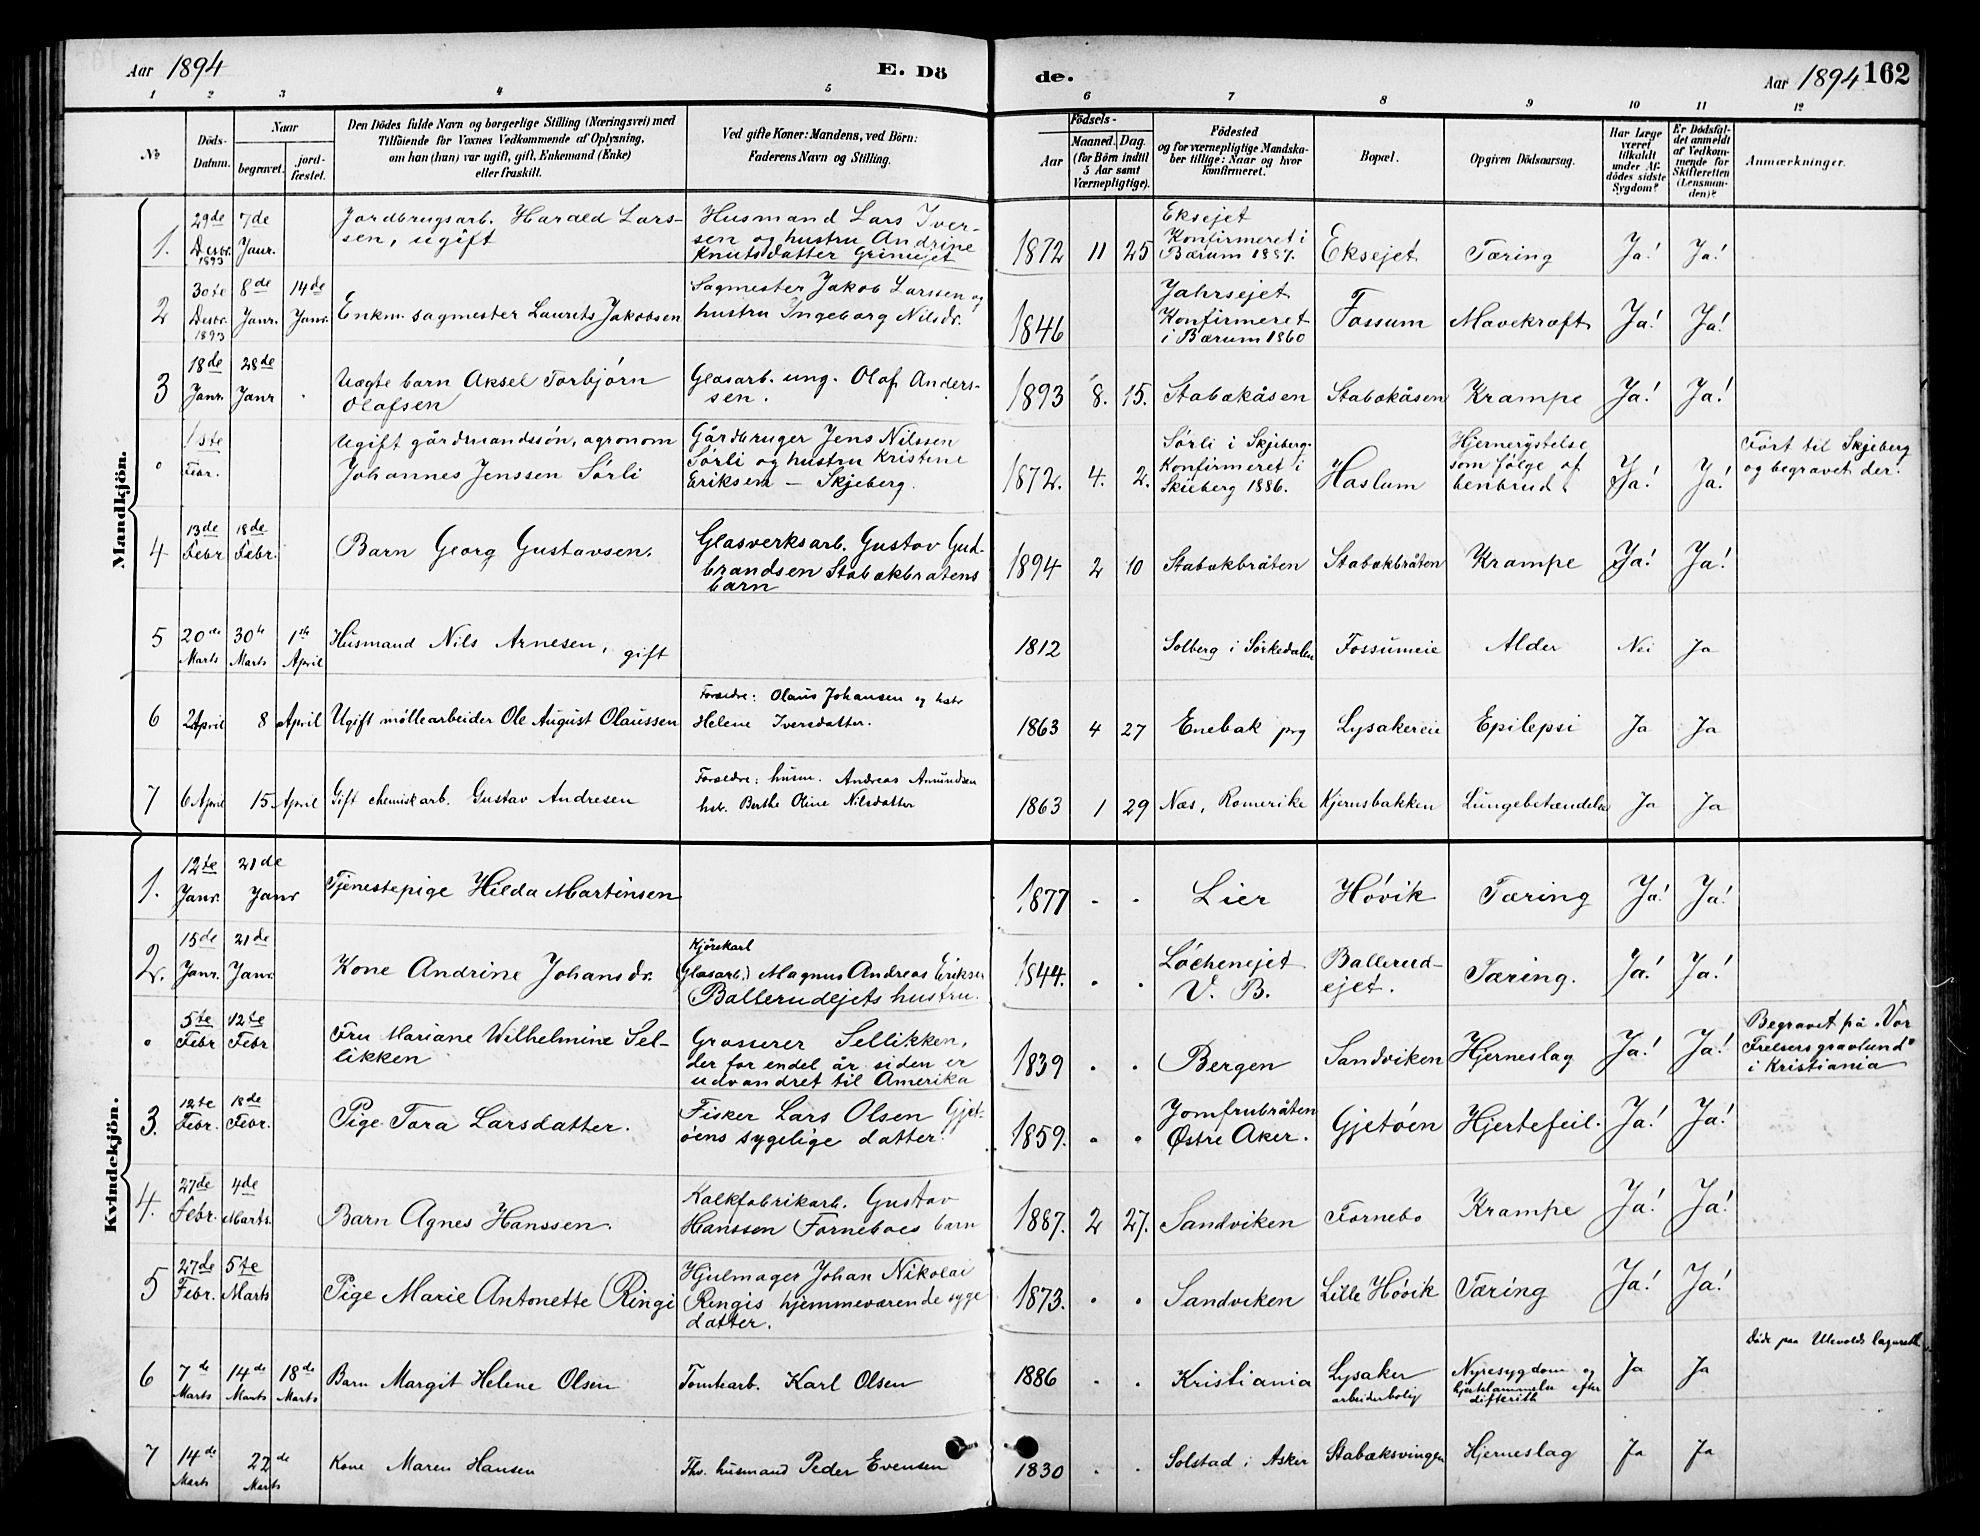 Aar 1894 E. Dö
de. Aar 1894 162
1 2 3 4 5 6 7 8 9 10 11 12
No
Döds-
Datum.
Naar
begravet.
jord-
fæstet.
Den Dödes fulde Navn og borgerlige Stilling (Næringsvei) med
Tilföiende for Voxnes Vedkommende af Oplysning,
om han (hun) var ugift, gift, Enkemand (Enke)
eller fraskilt.
Ved gifte Koner: Mandens, ved Börn:
Faderens Navn og Stilling.
Födsels-
Aar
Maaned. Dag.
(for Börn indtil
5 Aar samt
Værnepligtige).
Födested
og for værnepligtige Mandska-
ber tillige: Naar og hvor
konfirmeret.
Bopæl.
Opgiven Dödsaarsag.
Har Læge
været
tilkaldt
under Af-
dödes sidste
Sygdom?
Er Dödsfal-
det anmeldt
af Vedkom-
mende for
Skifteretten
(Lensman-
den)?
Anmærkninger.
Mandkjön.
1. 29de Desbr. 1893 7de Janr.
Jordbrugsarb. Harald Lars-
sen, ugift
Husmand Lars Iver-
sen og hustru Andrine
Knutsdatter
1872 11 25
Eksejet
Konfirmeret i
Bærum 1887.
Eksejet Tæring Ja! Ja!
2 30te Desbr. 1893 8de Janr. 14de Janr.
Enkm. sagmester Laurets Jakobsen
Sagmester Jakob Larssen og
hustru Ingeborg Nilsdr.
1846
Jahrsejet
Konfirmeret
i Bærum 1860
Fossum Mavekræft Ja! Ja!
3 18de Janr. 28de Janr
Uægte barn Aksel Torbjörn
Olafsen
Glasarb. ung. Olaf Anders-
sen.
1893 8. 15. Stabækåsen Stabækåsen Krampe Ja! Ja!
1ste Febr.
Ugift gårdmandssön, agronom
Johannes Jenssen Sörli
Gårdbruger Jens Nilssen
Sörli og hustru Kristine
Eriksen – Skjeberg.
1872. 4. 2.
Sörli i Skjeberg.
Konfirmeret i
Skjeberg 1886.
Haslum
Hjernerystelse
som fölge af
benbrud
Ja! Ja!
Fört til Skjeberg
og begravet der.
4 13de Febr 18de Febr.
Barn Georg Gustavsen.
Glasverksarb. Gustav Gud-
brandsen Stabækbråtens
barn
1894 2 10 Stabækbråten Stabækbråten Krampe Ja! Ja!
5 20de Marts 30te Marts 1ste April
Husmand Nils Arnesen, gift
1812 Solberg i Sörkedalen Fossumeie Alder Nei Ja
6 2 April 8 April
Ugift möllearbeider Ole August Olaussen
Forældre: Olaus Johansen og hstr
Helene Iversdatter.
1863 4 27 Enebak prg Lysakereie Epilepsi Ja Ja
7 6 April 15 April
Gift chemiskarb. Gustav Andresen
Forældre: husm. Andreas Amundsen
hst. Berthe Oline Nilsdatter
1863 1 29 Næs, Romerike Kjernsbakken Lungebetændelse Ja Ja
Kvindekjön.
1. 12te Janr. 21de Janr
Tjenestepige Hilda Martinsen
1877 Lier Hövik Tæring Ja! Ja!
2. 15de Janr. 21de Janr
Kone Andrine Johansdr.
Kjörekarl
(Glasarb.) Magnus Andreas Eriksen
Ballerudejets hustru.
1844.
Löchenejet
V. B.
Ballerud-
ejet.
Tæring. Ja! Ja!
5te Febr 12te Febr
Fru Mariane Wilhelmine Sel-
likken
Grosserer Sellikken,
der for endel år siden er
udvandret til Amerika
1839 Bergen Sandviken Hjerneslag Ja! Ja!
Begravet på "Vor
Frelsers gravlund"
i Kristiania
3. 12te Febr. 18de Febr.
Pige Tora Larsdatter.
Fisker Lars Olsen Gjet-
öens sygelige datter.
1859.
Jomfrubråten
Østre Aker.
Gjetöen Hjertefeil. Ja! Ja!
4. 27de Febr. 4de Marts.
Barn Agnes Hanssen.
Kalkfabrikarb. Gustav
Hanssen Forneboes barn
1887. 2 27. Sandviken Fornebo Krampe Ja! Ja!
5 27de Febr. 5te Marts
Pige Marie Antonette Ringi
Hjulmager Johan Nikolai
Ringis hjemmeværende syge
datter.
1873. Sandviken Lille Hövik Tæring Ja! Ja!
6 7de Marts 14de Marts 18de Marts
Barn Margit Helene Olsen
Tomtearb. Karl Olsen
1886 Kristiania
Lysaker
arbeiderbolig
Nyresygdom og
hjertelammelse efter
difterith
Ja Ja
Döde paa Ullevolds lazareth
7 14de Marts 22de Marts
Kone Maren Hansen
Fhv. husmand Peder Evensen
1830 Solstad i Asker Stabæksvingen Hjerneslag Ja Ja